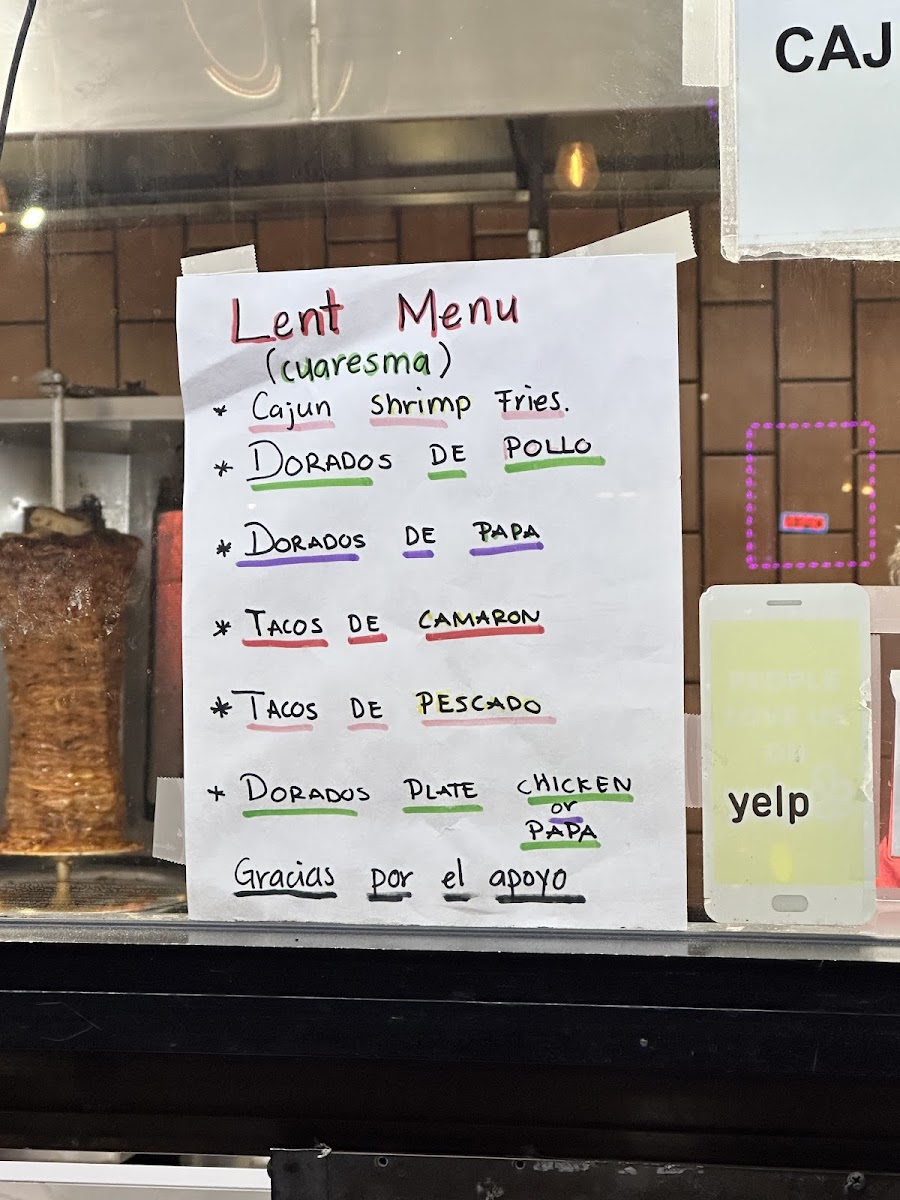 CAJ
Lent Menu
(cuaresma)
* Cajun Shrimp Fries.
* DORADOS DE POLLO
* DORADOS DE PAPA
* TACOS DE CAMARON
* TACOS DE PESCADO
* DORADOS PLATE CHICKEN
or
PAPA
Gracias por el apoyo
PEOPLE
yelp